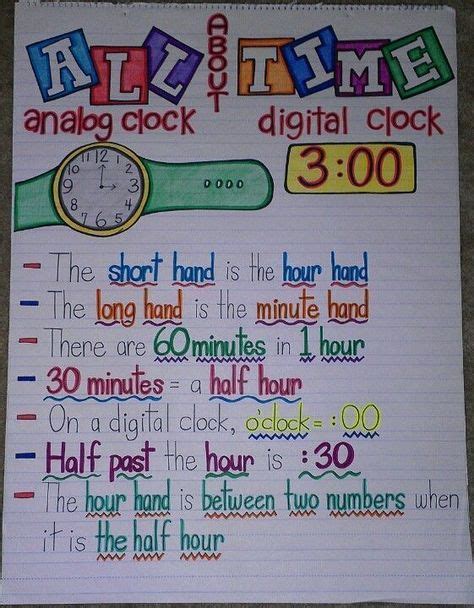 ALL ABOUT TIME
analog clock digital clock
12
11 1
10 2
9 3
8 4
7 5
6
3:00
The short hand is the hour hand
The long hand is the minute hand
There are 60 minutes in 1 hour
30 minutes = a half hour
On a digital clock, o'clock = :00
Half past the hour is :30
The hour hand is between two numbers when
it is the half hour